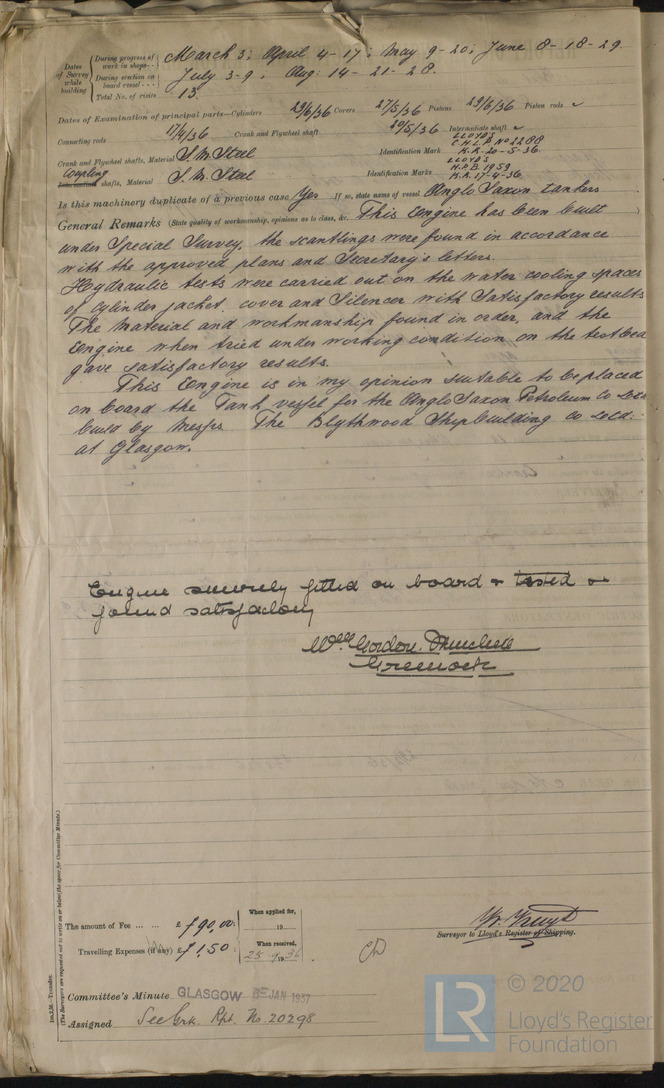 Dates of Survey while building
During progress of work in shops - - March 3; April 4-17; May 9-20; June 8-18-29.
During erection on board vessel - - - July 3-9; Aug: 14-21-28.
Total No. of visits 13.
Dates of Examination of principal parts—Cylinders 29/6/36 Covers 27/5/36 Pistons 29/6/36 Piston rods ✓
Connecting rods 17/4/36 Crank and Flywheel shaft 20/5/36 Intermediate shaft ✓
Crank and Flywheel shafts, Material S.M. Steel Identification Mark LLOYD'S C.H.L.P. No 2288 K.R. 20-5-36.
Coupling shafts, Material S.M. Steel Identification Marks LLOYD'S H.P.B. 1959 K.R. 17-4-36.
Is this machinery duplicate of a previous case Yes If so, state name of vessel Anglo Saxon tankers
General Remarks (State quality of workmanship, opinions as to class, &c. This Engine has been built
under Special Survey, the scantlings were found in accordance
with the approved plans and Secretary's letters.
Hydraulic tests were carried out on the water cooling spaces
of cylinder jacket, cover and Silencer with Satisfactory results
The Material and workmanship found in order, and the
Engine when tried under working condition on the testbed
gave satisfactory results.
This Engine is in my opinion suitable to be placed
on board the Tank vessel for the Anglo Saxon Petroleum Co Ltd
build by Messrs The Blythwood Shipbuilding Co Ltd:
at Glasgow.
Engine securely fitted on board & tested &
found satisfactory
Wm Gordon
Greenock
Im.2.M.—Transfer.
(The Surveyors are requested not to write on or below the space for Committee Minute.)
The amount of Fee ... ... £ f 90.00: When applied for, 19
Travelling Expenses (if any) £ f 1.50 When received, 19 36
Surveyor to Lloyd's Register of Shipping.
Committee's Minute GLASGOW 5 JAN 1937
Assigned See Grk. Rpt. No. 20298
LR © 2020
Lloyd's Register
Foundation